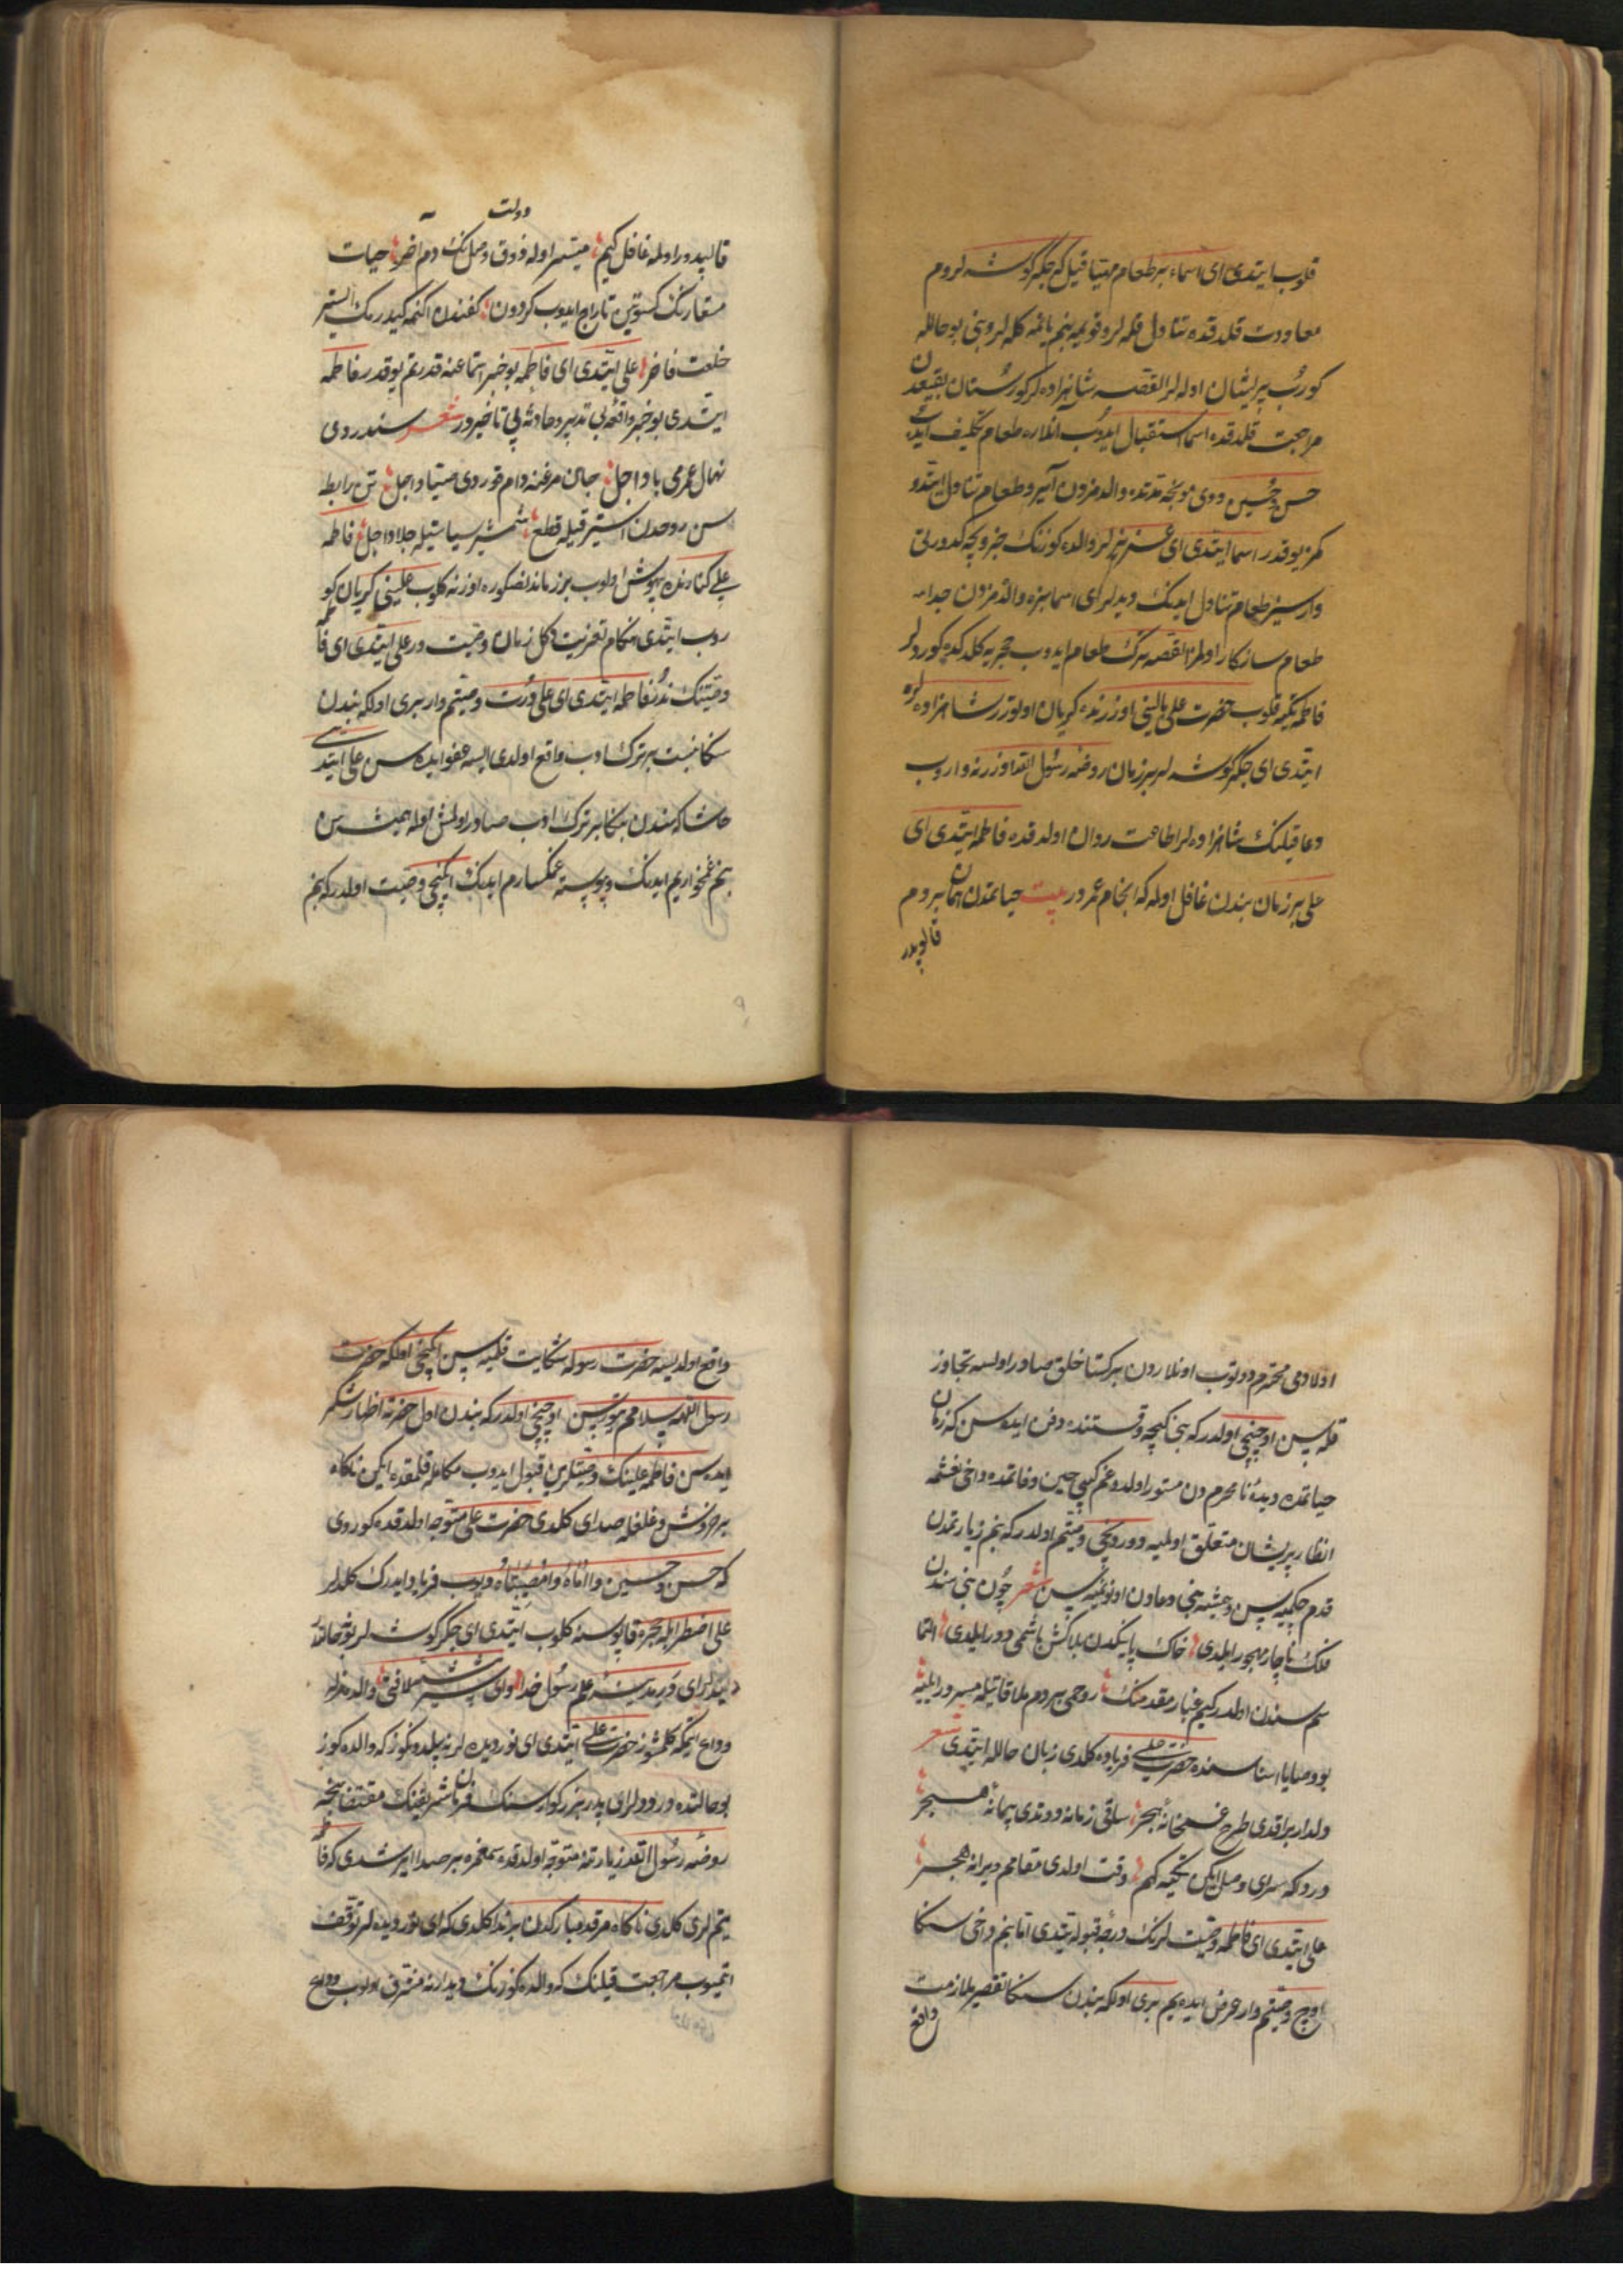 قلوب ایتدی ای اسماء بر طعام مهیا قیل که جکر کوشه لروم
معاودت قلدقده تناول قله لر و قویمه بنم یانمه کله لر و بنی بو حالله
کورُب پریشان اوله لر القصه شاهزاده لر کورستان بقیعدن
مراجعت قلدقده اسما استقبال ایدوُب آنلاره طعام تکلیف ایتدی
حسن و حُسین دیدی هرنجه مدتده والدمزدن آیرو طعام تناول ایتدو
کمز یوقدر اسما ایتدی ای عزیزلر والده کوزنک جزویجه کدورتی
وار سیز طعام تناول ایدنک دیدیلر ای اسما بیزه والدمزدن جدا
طعام سازکار اولمز القصه ترک طعام ایدوب حجریه کلدکده کوردولر
فاطمه تکیه قلوب حضرت علی بالینی اوزرنده کریان اولتورر شاهزاده لره
ایتدی ای جکر کوشه لر بر زمان روضه رسول الله اوزرنه واروب
دعا قیلنک شاهزاده لر اطاعت روان اولدقده فاطمه ایتدی ای
علی بر زمان بندن غافل اوله که انجام عمردر بیت حیاتمدن همان بر دم
قالوبدر
دولت
قالیدور اوله غافل کیم میسر اوله ذوق وصل نک دم آخر حیات
مستعارنک کسوتین تاراج ایدوب کردون کفندن اکنمه کیدرمک استیر
خلعت فاخر علی ایتدی ای فاطمه بو خبر استماعنه قدرتم یوقدر فاطمه
ایتدی بو خبر واقعه بی تدبیر و حادثه بی تاخیردر شعر سندردی
نهال عمرمی باد اجل جان مرغنه دام قوردی صیاد اجل تن رابطه
سن روحدن استیر قیله قطع شمشیر سیاستیله جلاد اجل فاطمه
علی کنارنده بیهوش اولوب بر زماندنصکره اوزنه کلوب علینی کریان کو
روب ایتدی هنکام تعزیت دکل زمان وصیت در علی ایتدی ای فاطمه
وصیتنک ندُر فاطمه ایتدی ای علی دورت وصیتم وار بری اولکه بندن
سکا نسبت بر ترک ادب واقع اولدی ایسه عفو ایده سن علی ایتدی
حاشا که سندن بکا بر ترک ادب صادر اولمش اوله همیشه سن
بنم غمخواریم ایدنک و پیوسته غمکسارم ایدنک ایکنجی وصیت اولدر که بنم
اولادمی محترم دوتوب اونلاردن بر کستاخلق صادر اولسه تجاوز
قله سن اوچنجی اولدر که بنی کیچه وقتنده دفن ایده سن که زمان
حیاتمده دیدهٔ نامحرم دن مستور اولدوغم کبی حین وفاتمده داخی نعشمه
انظار پریشان متعلق اولمیه دوردنجی وصیتم اولدر که بنم زیارتمدن
قدم چکمیه سن و همیشه بنی دعادن اونوتمیه سن شعر چون بنی سندن
فلک ناچار مهجور ایلدی خاک پایکدن بلاکش باشمی دور ایلدی التما
سم سندن اولدر کیم غبار مقدمنک روحمی هر دم ملاقاتیله مسرور ایلیه
بو وصایا اثناسنده حضرت علی فریاده کلدی زبان حالله ایتدی شعر
دلدار براقدی طرح غمخانهٔ هجر ساقی زمانه دوتدی پیمانهٔ هجر
دردکه سرای وصل ایکن تکیه کهم وقت اولدی مقامم ویرانه هجر
علی ایتدی ای فاطمه وصیت لرنک درجه قبوله یتدی اما بنم داخی سکا
اوچ وصیتم وار عرض ایده یم بری اولکه بندن سکا تقصیر ملازمت
واقع
واقع اولدیسه حضرت رسوله شکایت قلمیه سن ایکنجی اولکه حضرت
رسول اللهه سلامم یتوره سن اوچنجی اولدر که بندن اول حضرته اظهار شکر
ایده سن فاطمه علینک وصیتلرین قبول ایدوب مکالمه قلمقده ایکن ناکاه
بر خروش و غلغله صدای کلدی حضرت علی متوجه اولدقده کوردی
که حسن و حسین وا اماه وا مصیبتاه دیوب فریاد ایدرک کلدلر
علی اضطرابله حجره قاپوسنه کلوب ایتدی ای جکر کوشه لر بو نه حالدر
دیدیلر ای در مدینه علم رسول خدا وای شیر بیشه لافتی والدمزله
وداع ایتمکه کلمشوز حضرت علی ایتدی ای نور دیده لر نه بیلدونکوز که والده کوز
بو حالتده در دیدلر ای پدر بزرکوار سنک فرمان شریفنک مقتضاسنجه
روضهٔ رسول الله زیارتنه متوجه اولدقده سمعمزه بر صدا ایرشدی که فاطمه
یتیم لری کلدی ناکاه مرقد مبارکدن بر ندا کلدی که ای نور دیده لر توقف
اتمیوب مراجعت قیلنک که والده کوزنک دیدارنه مشرف اولوب وداع